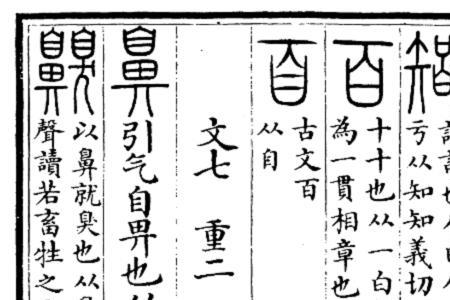 亏从知知義切
百
十十也从一白
為一貫相章也
百
古文百
从自
文七 重二
鼻
引气自畀也
齅
以鼻就臭也从
聲讀若畜牲之